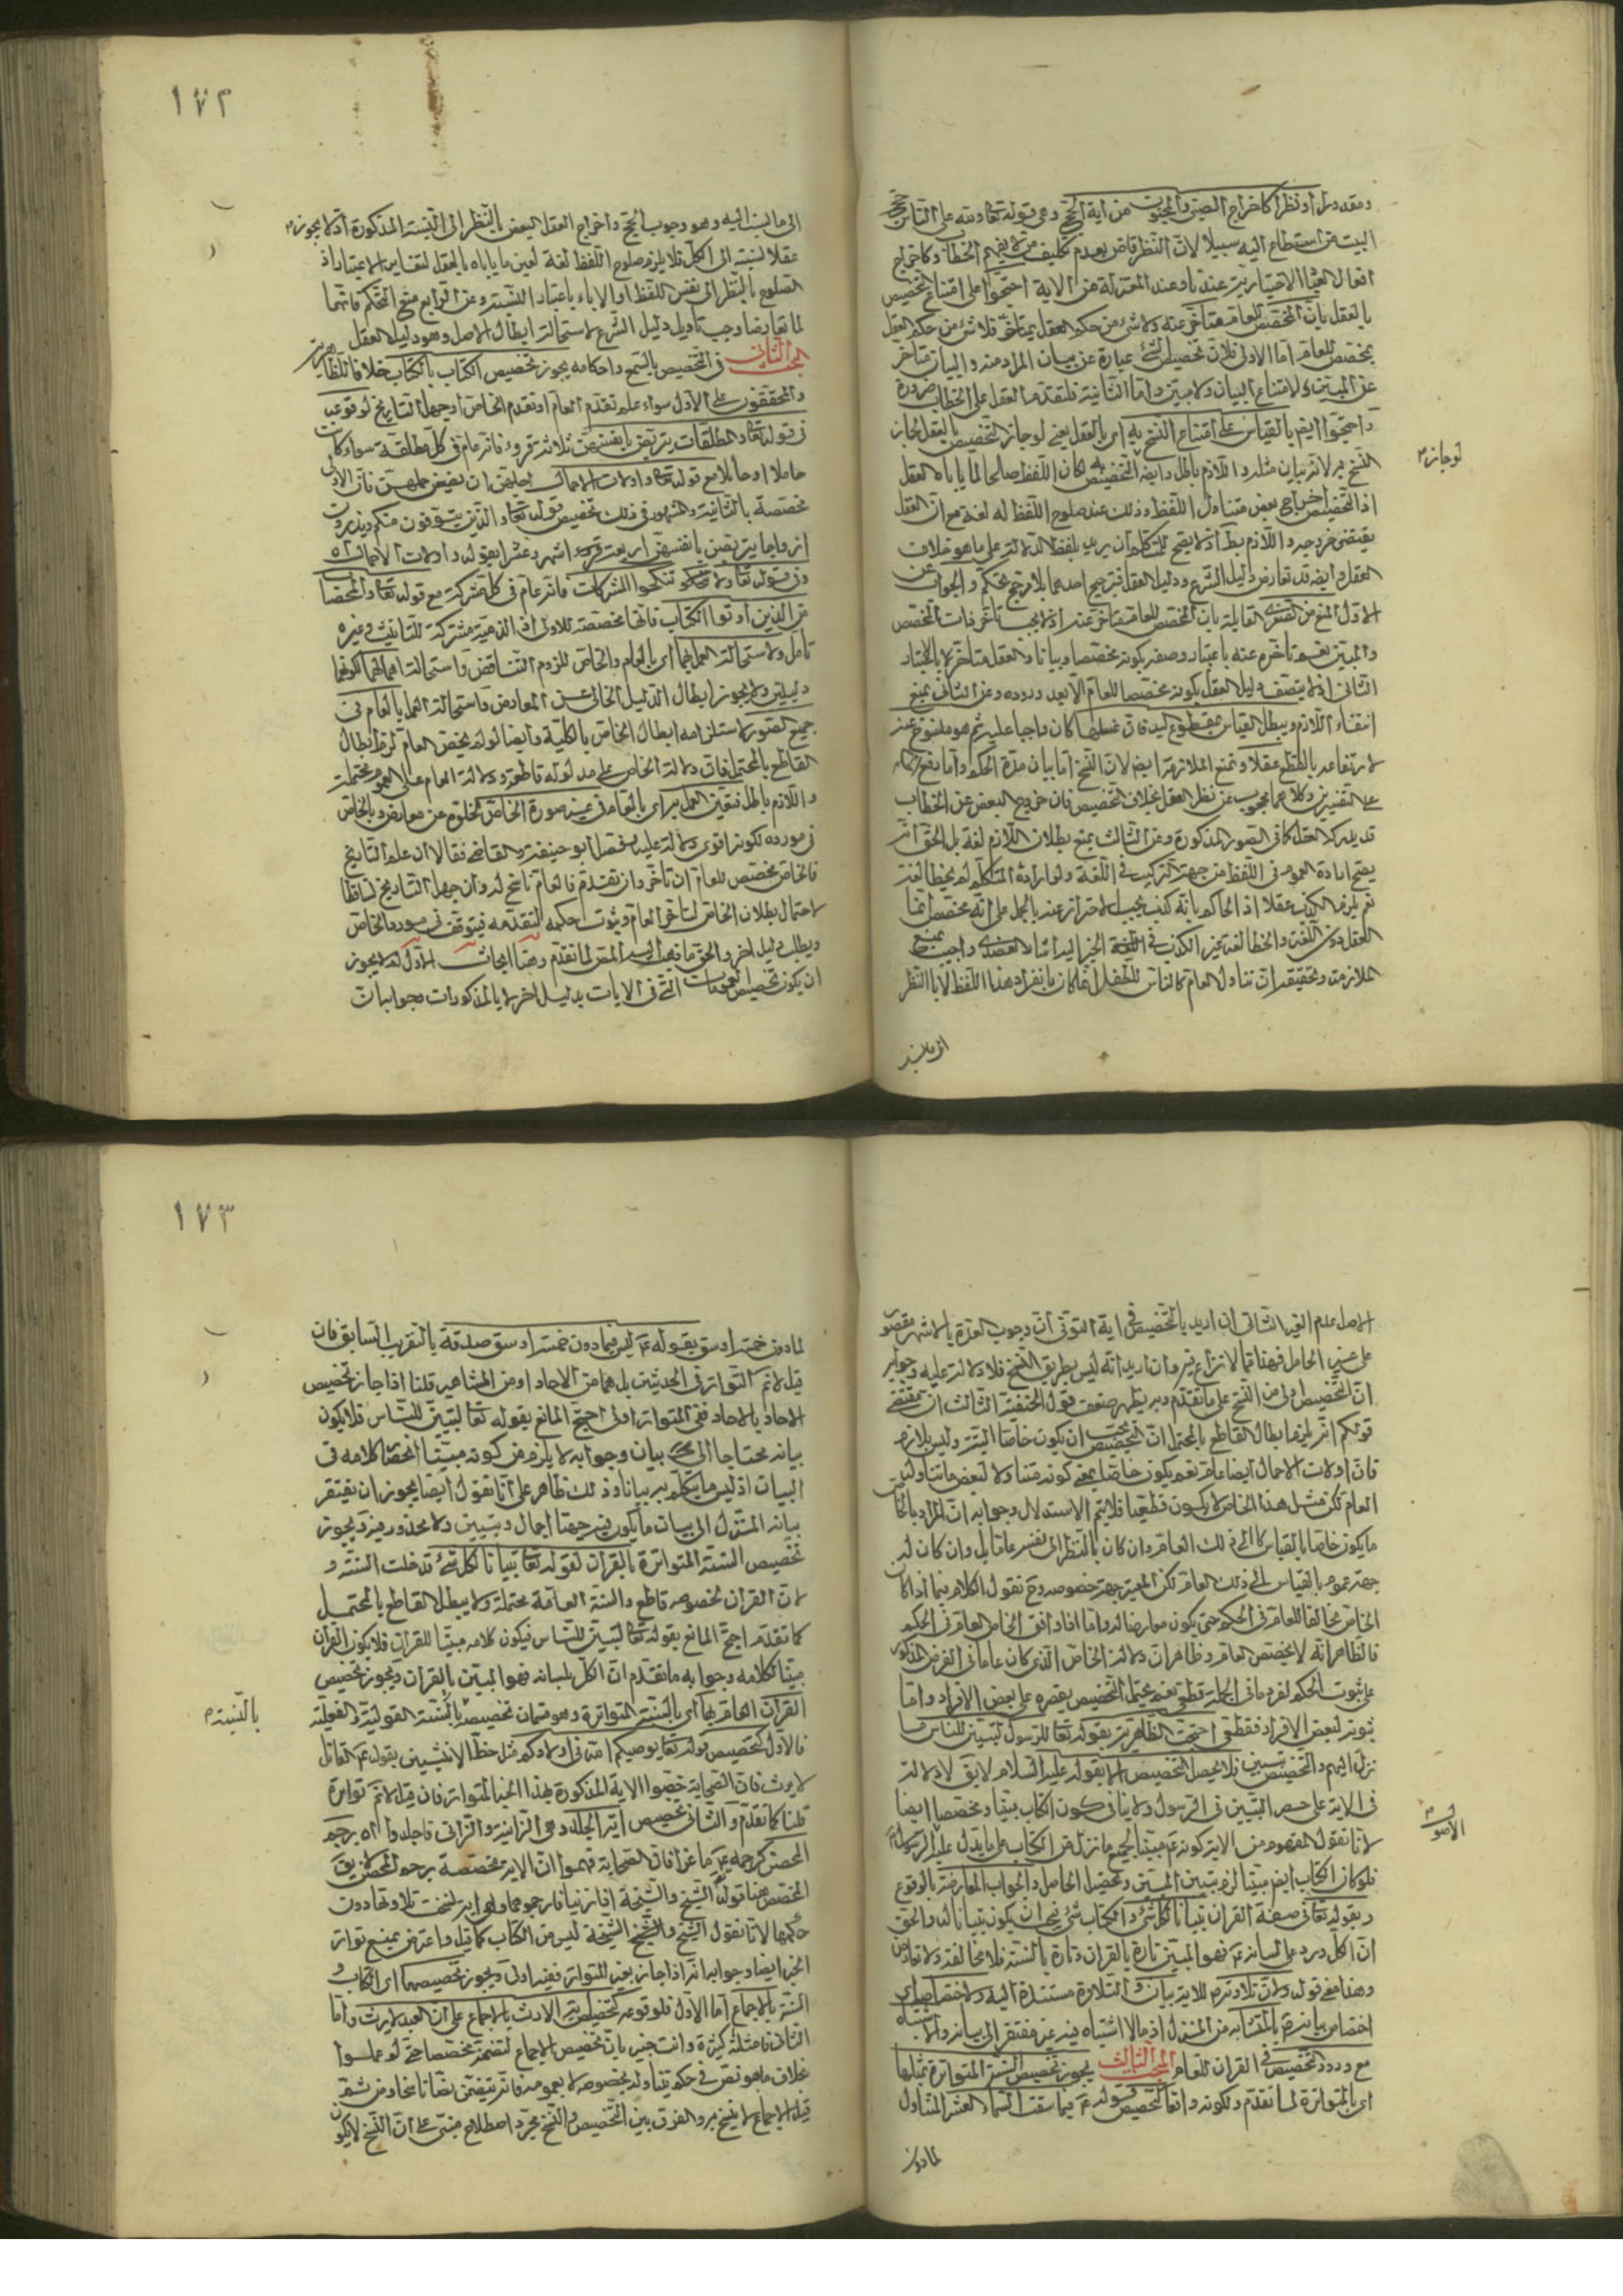 او نظرا كاخراج الصبى والمجنون من آية الحج وهى قوله تعا ولله على الناس حج
البيت من استطاع اليه سبيلا لان النظر قاض بعدم تكليف من لا يفهم الخطاب وكاخراج
افعال العباد الاختيارية عندنا وعند المعتزلة من الاية احتجوا على امتناع تخصيص
بالعقل بان المخصص للعام متاخر عنه ولا شئ من حكم العقل بمتاخر فلا شئ من حكم العقل
بمخصص للعام اما الاول فلان تخصيص الشئ عبارة عن بيان المراد منه والبيان متاخر
عن المبين لامتناع البيان ولا مبين واما الثانية فلتقدم العقل على الخطاب ضرورة
واحتجوا ايضا بالقياس على امتناع النسخ به اى بالعقل يعنى لو جاز التخصيص بالعقل لجاز
النسخ به لانه بيان مثله واللازم باطل وايضا التخصيص به لكان اللفظ صالحا لما ياباه العقل
لو جاز
اذ التخصيص اخراج بعض متناول اللفظ وذلك عند صلوح اللفظ له لغة مع ان العقل
يقتضى خروجه واللازم بط اذ لا يصح للمتكلم ان يريد بلفظ الدلالة على ما هو خلاف
العقل وايضا قد تعارض دليل الشرع ودليل العقل فترجيح احدهما بلا مرجح تحكم والجواب عن
الاول المنع من الصغرى القائلة بان المخصص للعام متاخر عنه اذ لا يجب تاخر ذات المخصص
والمبين نعم تاخره عنه باعتبار وصف كونه مخصصا وبيانا والعقل متاخر بالاعتبار
الثانى اذ لا يتصف دليل العقل بكونه مخصصا للعام الا بعد وروده وعن الثانى بمنع
انتفاء اللازم ويبطل القياس بمقطوع اليد فان غسلها كان واجبا عليه ثم هو منسوخ عنه
لارتفاعه بالقطع عقلا ونمنع الملازمة ايضا لان النسخ اما بيان مدة الحكم واما رفع الحكم
على التفسيرين وكلاهما محجوب عن نظر العقل بخلاف التخصيص فان خروج البعض عن الخطاب
قد يدركه العقل كما فى الصور المذكورة وعن الثالث بمنع بطلان اللازم لغة بل الحق انه
يصح ارادة العموم فى اللفظ من جهة التركيب فى اللغة ولو اراده المتكلم لم يخط لغة
نعم يلزمه الكذب عقلا اذ الحاكم بانه كذب يجب الاحتراز عنه بالحمل على انه مخصص انما
العقل دون اللغة والخطا لغة غير الكذب فى الخبر اليه اشار العضدى واجيب بمنع
الملازمة وتحقيقه ان تناول العام كالناس للطفل انما كان بانفراد هذا اللفظ لا بالنظر
الى ما نسب
١٧٢
الى ما نسب اليه وهو وجوب الحج واخراج العقل البعض بالنظر الى النسبة المذكورة اذ لا يجوز
عقلا نسبته الى الكل فلا يلزم صلوح اللفظ لغة لعين ما ياباه بالعقل لتغاير الاعتبار اذ
الصلوح بالنظر الى نفس اللفظ والاباء باعتبار النسبة وعن الرابع منع التحكم فانهما
لما تعارضا وجب تاويل دليل الشرع لاستحالة ابطال الاصل وهو دليل العقل
المبحث الثانى فى التخصيص بالسمع واحكامه يجوز تخصيص الكتاب بالكتاب خلافا للظاهرية
والمحققون على الاول سواء علم تقدم العام او تقدم الخاص او جهل التاريخ لوقوعه
فى قوله تعا والمطلقات يتربصن بانفسهن ثلاثة قروء فانه عام فى كل مطلقة سواء كانت
حاملا او حائلا مع قوله تعا واولات الاحمال اجلهن ان يضعن حملهن فان الاولى
مخصصة بالثانية والمشهور فى ذلك تخصيص قوله تعا والذين يتوفون منكم ويذرون
ازواجا يتربصن بانفسهن اربعة اشهر وعشرا بقوله واولات الاحمال اه
وفى قوله تعا ولا تنكحوا المشركات فانه عام فى كل مشركة مع قوله تعا والمحصنات
من الذين اوتوا الكتاب فانها مخصصة للاولى اذ الذمية مشركة للتثليث وغيره
تامل ولاستحالة العمل بهما اى بالعام والخاص للزوم التناقض واستحالة اهمالهما لكونهما
دليلين ولا يجوز ابطال الدليل الخالى عن المعارض واستحالة العمل بالعام فى
جميع الصور لاستلزامه ابطال الخاص بالكلية وايضا لو لم يخص العام لزم ابطال
القاطع بالمحتمل فان دلالة الخاص على مدلوله قاطعة ودلالة العام على العموم محتملة
واللازم باطل فتعين العمل به اى بالعام فى غير صورة الخاص لخلوه عن معارض وبالخاص
فى مورده لكونه اقوى دلالة عليه وفصل ابو حنيفة والقاضى فقالا ان علم التاريخ
فالخاص مخصص للعام ان تاخر وان تقدم فالعام ناسخ له وان جهل التاريخ تساقطا
لاحتمال بطلان الخاص لتاخر العام وثبوت حكمه لتقدمه فيتوقف فى مورد الخاص
ويطلب دليل اخر والحق ما ذهب اليه المص لما تقدم وهنا ابحاث الاول لم لا يجوز
ان يكون تخصيص العمومات التى فى الايات بدليل اخر لا بالمذكورات وجوابه ان
الاصل عدم الغير الثانى ان اريد بالتخصيص فى اية التوفى ان وجوب العدة بالاشهر مقصور
على غير الحامل فهذا مما لا نزاع فيه وان اريد انه ليس بطريق النسخ فلا دلالة عليه وجوابه
ان التخصيص اولى من النسخ على ما تقدم وبه يظهر ضعف قول الحنفية الثالث ان مقتضى
قولكم انه يلزم ابطال القاطع بالمحتمل ان المخصص يجب ان يكون خاصا البتة وليس بلازم
فان اولات الاحمال ايضا عام نعم يكون خاصا بمعنى كونه متناولا لبعض ما تناوله
العام لكن مثل هذا الخاص لا يكون قطعيا فلا يتم الاستدلال وجوابه ان المراد بالخاص
ما يكون خاصا بالقياس الى ذلك العام وان كان بالنظر الى نفسه عاما بل وان كان له
جهة عموم بالقياس الى ذلك العام لكن المعتبر جهة خصوصه وح نقول الكلام فيما اذا كان
الخاص مخالفا للعام فى الحكم حتى يكون معارضا له واما اذا وافق الخاص العام فى الحكم
فالظاهر انه لا يخصص العام وظاهر ان دلالة الخاص الذى كان عاما فى الفرض المذكور
على ثبوت الحكم لفرد ما فى الجملة قطعى نعم يحتمل التخصيص بقصره على بعض الافراد واما
ثبوته لبعض الافراد فقطعى احتجت الظاهرية بقوله تعا للرسول لتبين للناس ما
نزل اليهم والتخصيص تبيين فلا يحصل التخصيص الا بقوله عليه السلام لا يق لا دلالة
فى الاية على حصر التبيين فى الرسول ولا ينافى كون الكتاب مبينا ومخصصا ايضا
لانا نقول المفهوم من الاية كونه مبينا لجميع ما نزل من الكتاب على ما يدل عليه
فلو كان الكتاب ايضا مبينا لزم تبيين المبين وتحصيل الحاصل والجواب المعارضة بالوقوع
وبقوله تعا فى صفة القران تبيانا لكل شئ والكتاب شئ فيجب ان يكون تبيانا له والحق
ان الكل ورد على لسانه فهو المبين تارة بالقران وتارة بالسنة فلا مخالفة ولا تعارض
وهذا معنى قوله ولان تلاوته للاية بيان والتلاوة مستندة اليه
اختصاص بيانه بالمتشابه من المنزل اذ ما لا اشتباه فيه غير مفتقر الى بيان
مع ورود التخصيص فى القران للعام المبحث الثالث يجوز تخصيص السنة المتواترة بمثلها
اى بالمتواترة لما تقدم ولكونه واقعا كتخصيص قوله فيما سقت السماء العشر المتناول
لما دون
١٧٣
لما دون خمسة اوسق بقوله ليس فيما دون خمسة اوسق صدقة بالتقريب السابق فان
قيل لانم التواتر فى الحديثين بل هما من الاحاد او من المشاهير قلنا اذا جاز تخصيص
الاحاد بالاحاد ففى المتواتر اولى احتج المانع بقوله تعا لتبين للناس فلا يكون
بيانه محتاجا الى بيان وجوابه لا يلزم من كونه مبينا انحصار كلامه فى
البيان اذ ليس ما يتكلم به بيانا وذلك ظاهر على انا نقول ايضا يجوز ان يفتقر
بيانه المنزل الى بيان ما يكون فيه جهتا اجمال وتبيين ولا محذور فيه ويجوز
تخصيص السنة المتواترة بالقران لقوله تعا تبيانا لكل شئ فدخلت السنة و
لان القران بخصوصه قاطع والسنة العامة محتملة ولا يبطل القاطع بالمحتمل
كما تقدم احتج المانع بقوله تعا لتبين للناس فيكون كلامه مبينا للقران فلا يكون القران
مبينا لكلامه وجوابه ما تقدم ان الكل بلسانه فهو المبين بالقران ويجوز تخصيص
القران العام بها اى بالسنة المتواترة وهو قسمان تخصيصه بالسنة القولية والفعلية
بالنسبة
فالاول كتخصيص قوله تعا يوصيكم الله فى اولادكم مثل حظ الانثيين بقوله القاتل
لا يرث فان الصحابة خصوا الاية المذكورة بهذا الخبر المتواتر فان قيل لانم تواتره
قلنا كما تقدم والثانى تخصيص اية الجلد وهى الزانية والزانى فاجلدوا اه برجم
المحصن كرجمه ماعزا فان الصحابة فهموا ان الاية مخصصة برجم المحصن لا يق
المخصص هنا قوله الشيخ والشيخة اذا زنيا فارجموهما وهى اية نسخت تلاوتها دون
حكمها لانا نقول الشيخ والشيخة ليس من الكتاب كما قيل واعترض بمنع تواتر
الخبر ايضا وجوابه انه اذا جاز بغير المتواتر ففيه اولى ويجوز تخصيصهما اى الكتاب و
السنة بالاجماع اما الاول فلوقوعه كتخصيص اية الارث بالاجماع على ان العبد لا يرث واما
الثانى فامثلته كثيرة وانت خبير بان تخصيص الاجماع لتضمنه مخصصا حتى لو عملوا
بخلاف ما هو نص فى حكم يتناوله بخصوصه لا بعمومه فانه يتضمن نصا ناسخا ومن ثم
قيل الاجماع لا ينسخ به والفرق بين التخصيص والنسخ مجرد اصطلاح مبنى على ان النسخ لا يكون